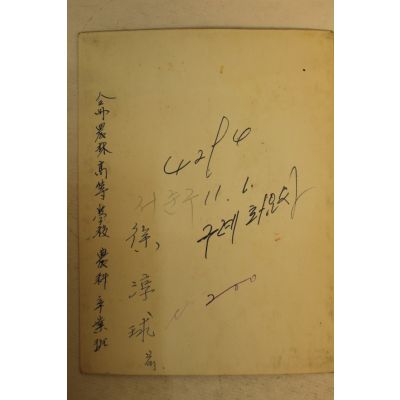 農林高等學校 農科 卒業班
서순구
徐淳球
11.1.
구례 화엄사
200